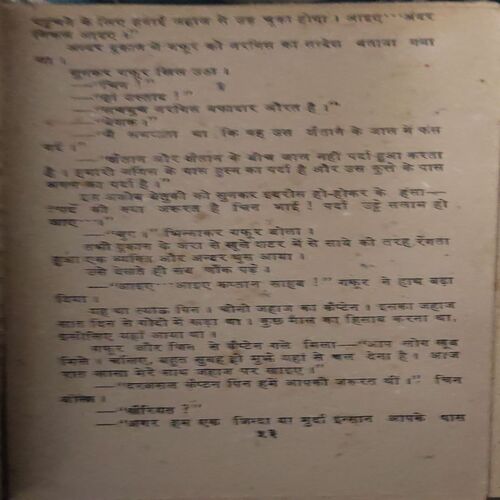 पहुंचने के लिए हवाई जहाज से उड़ चुका होगा । आइए अन्दर
निकल आइए ।"
अन्दर दुकान में गफूर को नरगिस का सन्देश बताया गया
था ।
सुनकर गफूर खिल उठा ।
—"चिन !"
—"हां उस्ताद !"
—"सचमुच नरगिस वफादार औरत है ।"
—"बेशक ।"
—"मैं समझता था कि वह उस शैतान के जाल में फंस
गई ।"
—"शैतान और शैतान के बीच जाल नहीं पर्दा हुआ करता
है । हमारी नरगिस के पास हुस्न का पर्दा है और उस कुत्ते के पास
का पर्दा है ।"
इस अजीब बेतुकी को सुनकर इदरीस हो-होकर के हंसा—
को क्या जरूरत है चिन भाई ! पर्दा उट्ठे सलाम हो
जाए
—"चुप ।" चिल्लाकर गफूर बोला ।
तभी दुकान के जरा से खुले शटर में से साये की तरह रेंगता
हुआ एक व्यक्ति और अन्दर घुस आया ।
उसे देखते ही सब चौंक पड़े ।
—"आइए आइए कप्तान साहब !" गफूर ने हाथ बढ़ा
दिया ।
यह था पिन । चीनी जहाज का कैप्टेन । इनका जहाज
सात दिन से गोदी में खड़ा था । कुछ माल का हिसाब करना था,
इसीलिए यहां आया था ।
गफूर और चिन से कैप्टेन गले मिला—"आप लोग खूब
मिले । चलिए, बहुत सुबह ही मुझे यहां से चल देना है । आज
रात खाना मेरे साथ जहाज पर खाइए ।"
—"दरअसल कैप्टेन पिन हमें आपकी जरूरत थी ।" चिन
बोला ।
—"खैरियत ?"
—"अगर हम एक जिन्दा या मुर्दा इन्सान आपके पास